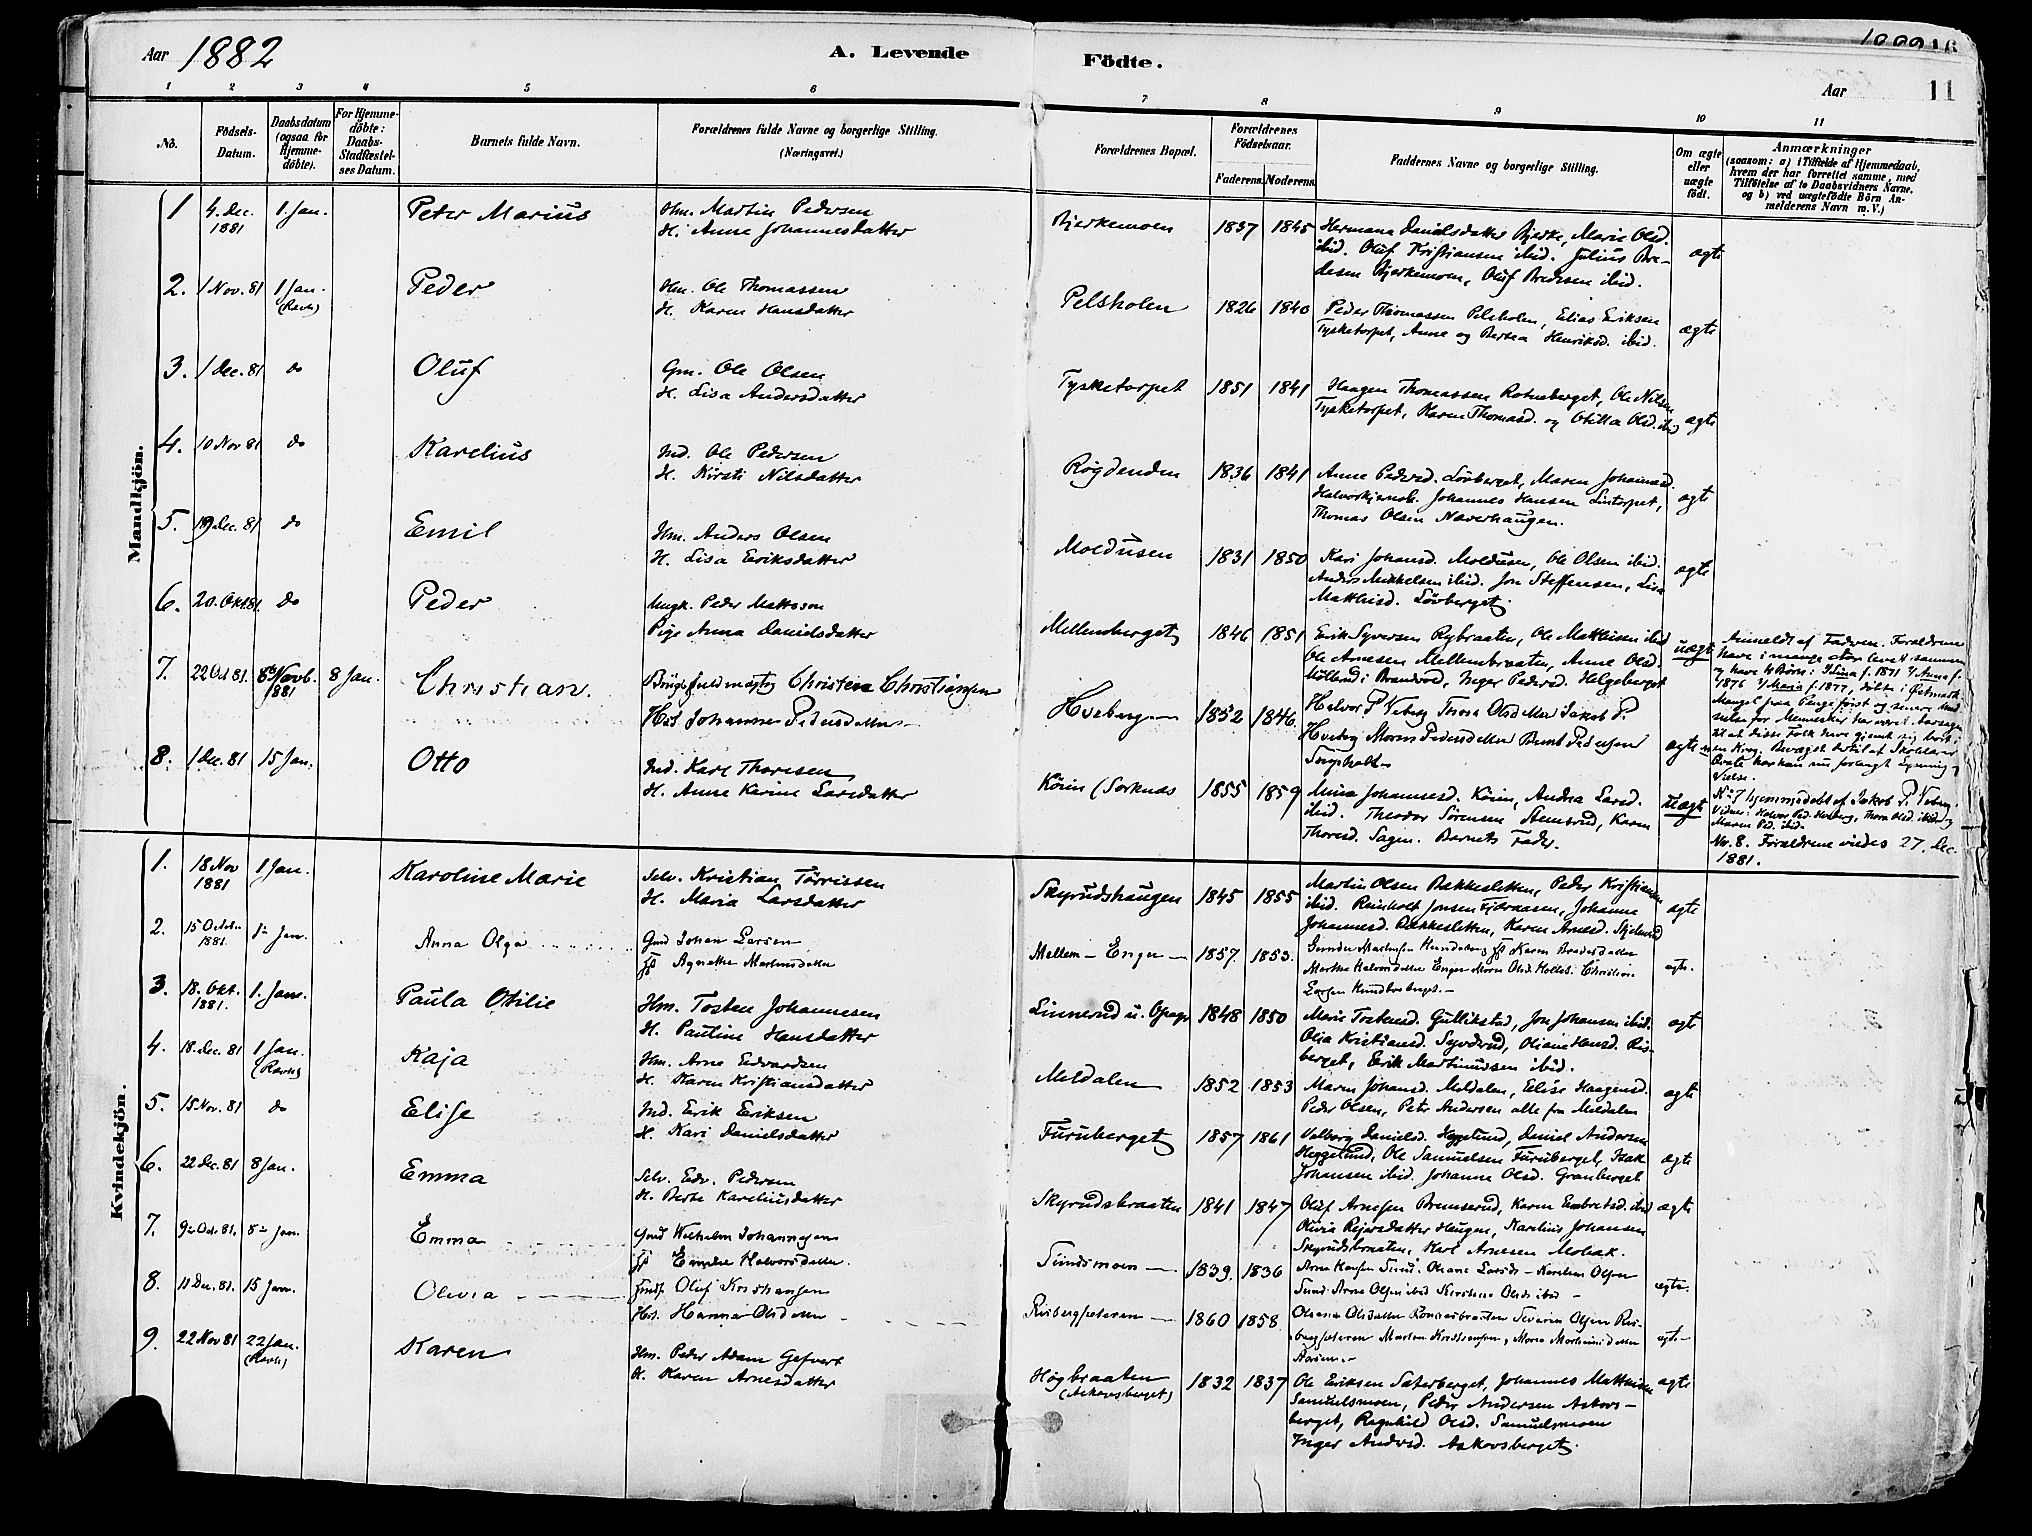 Aar 1882
A. Levende
Födte.
Aar
11
1 2 3 4 5 6 7 8 9 10 11
Nö.
Födsels-Datum.
Daabsdatum (ogsaa for Hjemme-döbte).
For Hjemme-döbte: Daabs-Stadfæstel-ses Datum.
Barnets fulde Navn.
Forældrenes fulde Navne og borgerlige Stilling. (Næringsvei.)
Forældrenes Bopæl.
Forældrenes Födselsaar.
Faderens. Moderens.
Faddernes Navne og borgerlige Stilling.
Om ægte eller uægte födt.
Anmærkninger
(saasom: a) i Tilfælde af Hjemmedaab,
hvem der har forrettet samme, med
Tilföielse af to Daabsvidners Navne.
og b) ved uægtefödte Börn An-
melderens Navn m.V.)
Mandkjön.
1 4. Dec. 1881 1 Jan. Peter Marius Hm. Martin Pedersen
H. Anne Johannesdatter
Bjerkemoen 1837 1845 Hermana Danielsdatter Bjerke, Marie Olsd.
ibid. Oluf Kristiansen ibid. Julius Bre-
desen Bjerkemoen, Oluf Bredesen ibid. ægte
2. 1 Nov. 81 1 Jan. (Ravh) Peder Hm. Ole Thomassen
H. Karen Hansdatter
Pelsholen 1826 1840 Peder Thomassen Pelsholen, Elias Eriksen
Tysketorpet, Anne og Bertea Henriksd. ibid. ægte
3. 1 Dec. 81 do Oluf Gm. Ole Olsen
H. Lisa Andersdatter
Tysketorpet 1851 1841 Haagen Thomassen Rotneberget, Ole Nilsen
Tysketorpet, Karen Thomasd. og Otilia Olsd. ibid ægte
4. 10 Nov 81 do Karelius Ind. Ole Pedersen
H. Kirsti Nilsdatter
Røgdenden 1836 1841 Anne Pedersd. Løvberget, Maren Johannesd.
Halvorkjernsb. Johannes Hansen Lintorpet,
Thomas Olsen Naverhaugen. ægte
5. 19 Dec. 81 do Emil Hm. Anders Olsen
H. Lisa Eriksdatter
Moldusen 1831 1850 Kari Johansd. Moldusen, Ole Olsen ibid.
Anders Mikkelsen ibid. Jon Steffensen, Lisa
Matthisd. Løvberget. ægte
6. 20. Okt. 81. do Peder Ungk. Peder Mattsson
Pige Anna Danielsdatter
Mellemberget 1846 1851 Erik Syversen Rybraaten, Ole Mathisen ibid
Ole Arnesen Mellembraaten, Anne Olsd.
Mölland i Brandvol, Inger Pedersd. Helgeberget uægte
Anmeldt af Faderen. Forældrene
have i mange Aar levet sammen
og have 4 Børn: Stina f. 1871 Anne f.
1876 Maria f. 1877, døbte i Østmark
Mangel paa Penge først og senere und
seelse for Mennesker har været Aarsage
til at disse Folk have gjemt sig bort
Krog.
7. 22 Oct 81. 1881 8 Jan. Christian. Christen Christiansen
Johanne Pedersdatter
Hveberg 1852 1846. Halvor P Veberg Thora Olsdatter Jakob P.
Hveberg Maren Pedersdatter Bernt Pedersen ægte
No 7 hjemmedøbt af Jakob P. Veberg.
8. 1 Dec. 81 15 Jan. Otto Ind. Karl Thoresen
H. Anne Karine Larsdatter
Köien (Sorknæs 1855 1859 Mina Johannesd. Köien, Andrea Larsd.
ibid. Theodor Sörensen Arnesrud, Karen
Thoresd. Sagen. Barnets Fader. uægte
No. 8. Forældrene viedes 27. Dec.
1881.
Kvindekjön.
1. 18 Nov 1881 1 Jan. Karoline Marie Selv. Kristian Törrissen
H. Maria Larsdatter
Skyrudshaugen 1845 1855 Martin Olsen Bakkesletten, Peder Kristiansen
ibid. Reinholt Jonsen Fjeraasen, Johanne
Johannesd. Bakkesletten, Karen Arnesd. ægte
2. 15 October 1881. 1ste Jan. Anna Olga Gmd Johan Larsen
H Agnethe Martinsdatter
Mellem-Enger 1857. 1853. ægte.
3. 18. Okt. 1881. 1. Jan. Paula Otilie Hm. Tosten Johannesen
H. Pauline Hansdatter
Linnerud u. Opegr 1848 1850 Marie Tostensd. Gullikstad, Jon Johansen ibid.
Olia Kristiansd. Syverud, Oliane Hansd. Ris-
berget, Erik Martinussen ibid. ægte
4. 18. Dec. 81 1 Jan. (Ravh) Kaja Hm. Arne Edvardsen
H. Karen Kristiansdatter
Meldalen 1852 1853 Maren Johansd. Meldalen, Elise Haagensd.
Peder Olsen, Peter Andersen alle fra Meldalen ægte
5. 15 Nov. 81 do Elise Ind. Erik Eriksen
H. Kari Danielsdatter
Furuberget 1857 1861 Valborg Danielsd. Heggelund, Daniel Andersen
Heggelund, Ole Samuelsen Furuberget, Isak
Johansen ibid. Johanne Olsd. Granberget ægte
6. 22 Dec. 81 8 Jan. Emma Selv. Edv. Pedersen
H. Berte Kareliusdatter
Skyrudsbraaten 1841 1847 Oluf Arnesen Bremserud, Karen Embretsd. ibid
Olivia Reiersdatter Haugen, Karelius Johansen
Skyrudsbraaten, Karl Arnesen Mobak. ægte
7. 9de Oct. 81. 8de Jan. Emma Gmd Wilhelm Johannesen
H Halvorsdatter.
Sundsmoen 1839. 1836 Arne Hansen Sund. Oleane Larsd. Karelius Olsen
Sund Arne Olsen ibid Olsd. ibid ægte.
8. 11 Dec. 81. 15 Janr. Olivia Oluf Kristiansen
Hst. Hanna Olsdatter
Risbergsæteren 1860 1858 ægte.
9. 22 Nov 81 22 Jan. (Ravh) Karen Hm. Peder Adam Gefvert
H. Karen Arnesdatter
Høgbraaten (Askovsberget) 1832 1837 Ole Eriksen Sæterberget, Johannes Mathisen
Samuelsmoen, Peder Andersen Askovs-
berget, Ragnhild Olsd. Samuelsmoen
Inger Andersd. Askovsberget. ægte